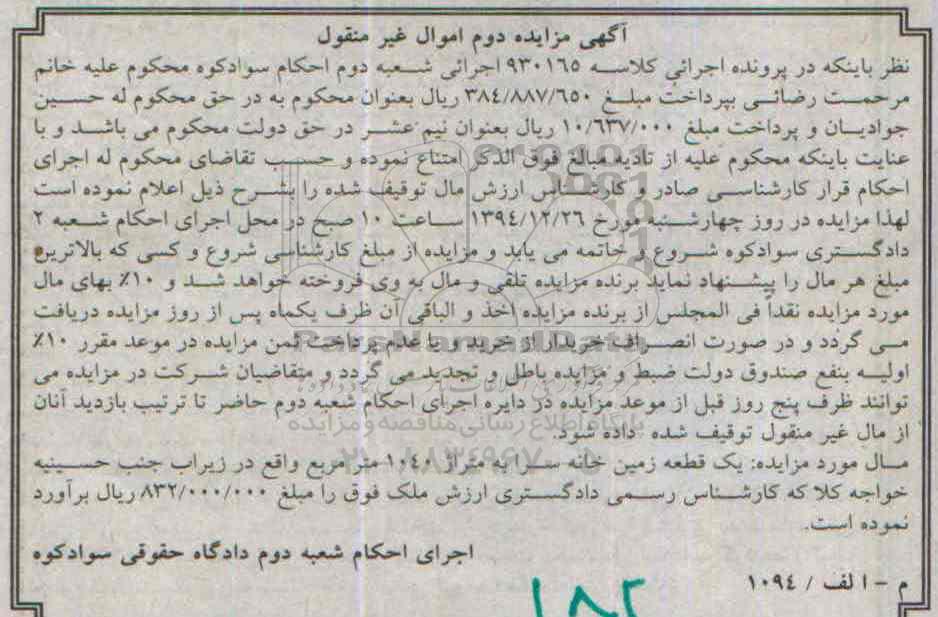 آگهی مزایده دوم اموال غیر منقول
نظر باینکه در پرونده اجرائی کلاسه ۹۳۰۱۶۵ اجرائی شعبه دوم احکام سوادکوه محکوم علیه خانم
مرحمت رضائی بپرداخت مبلغ ۳۸٤/۸۸۷/٦۵۰ ریال بعنوان محکوم به در حق محکوم له حسین
جوادیان و پرداخت مبلغ ۱۰/٦۳۷/۰۰۰ ریال بعنوان نیم عشر در حق دولت محکوم می باشد و با
عنایت باینکه محکوم علیه از تادیه مبالغ فوق الذکر امتناع نموده و حسب تقاضای محکوم له اجرای
احکام قرار کارشناسی صادر و کارشناس ارزش مال توقیف شده را بشرح ذیل اعلام نموده است
لهذا مزایده در روز چهارشنبه مورخ ۱۳۹٤/۱۲/۲٦ ساعت ۱۰ صبح در محل اجرای احکام شعبه ۲
دادگستری سوادکوه شروع و خاتمه می یابد و مزایده از مبلغ کارشناسی شروع و کسی که بالاترین
مبلغ هر مال را پیشنهاد نماید برنده مزایده تلقی و مال به وی فروخته خواهد شد و ۱۰٪ بهای مال
مورد مزایده نقداً فی المجلس از برنده مزایده اخذ و الباقی آن ظرف یکماه پس از روز مزایده دریافت
می گردد و در صورت انصراف خریدار از خرید و یا عدم پرداخت ثمن مزایده در موعد مقرر ۱۰٪
اولیه بنفع صندوق دولت ضبط و مزایده باطل و تجدید می گردد و متقاضیان شرکت در مزایده می
توانند ظرف پنج روز قبل از موعد مزایده در دایره اجرای احکام شعبه دوم حاضر تا ترتیب بازدید آنان
از مال غیر منقول توقیف شده داده شود.
مال مورد مزایده: یک قطعه زمین خانه سرا به متراژ ۱۰٤۰ متر مربع واقع در زیراب جنب حسینیه
خواجه کلا که کارشناس رسمی دادگستری ارزش ملک فوق را مبلغ ۸۳۲/۰۰۰/۰۰۰ ریال برآورد
نموده است.
اجرای احکام شعبه دوم دادگاه حقوقی سوادکوه
م - ا لف / ۱۰۹٤
۱۸۲
ParsNamadData
پایگاه اطلاع رسانی مناقصه و مزایده